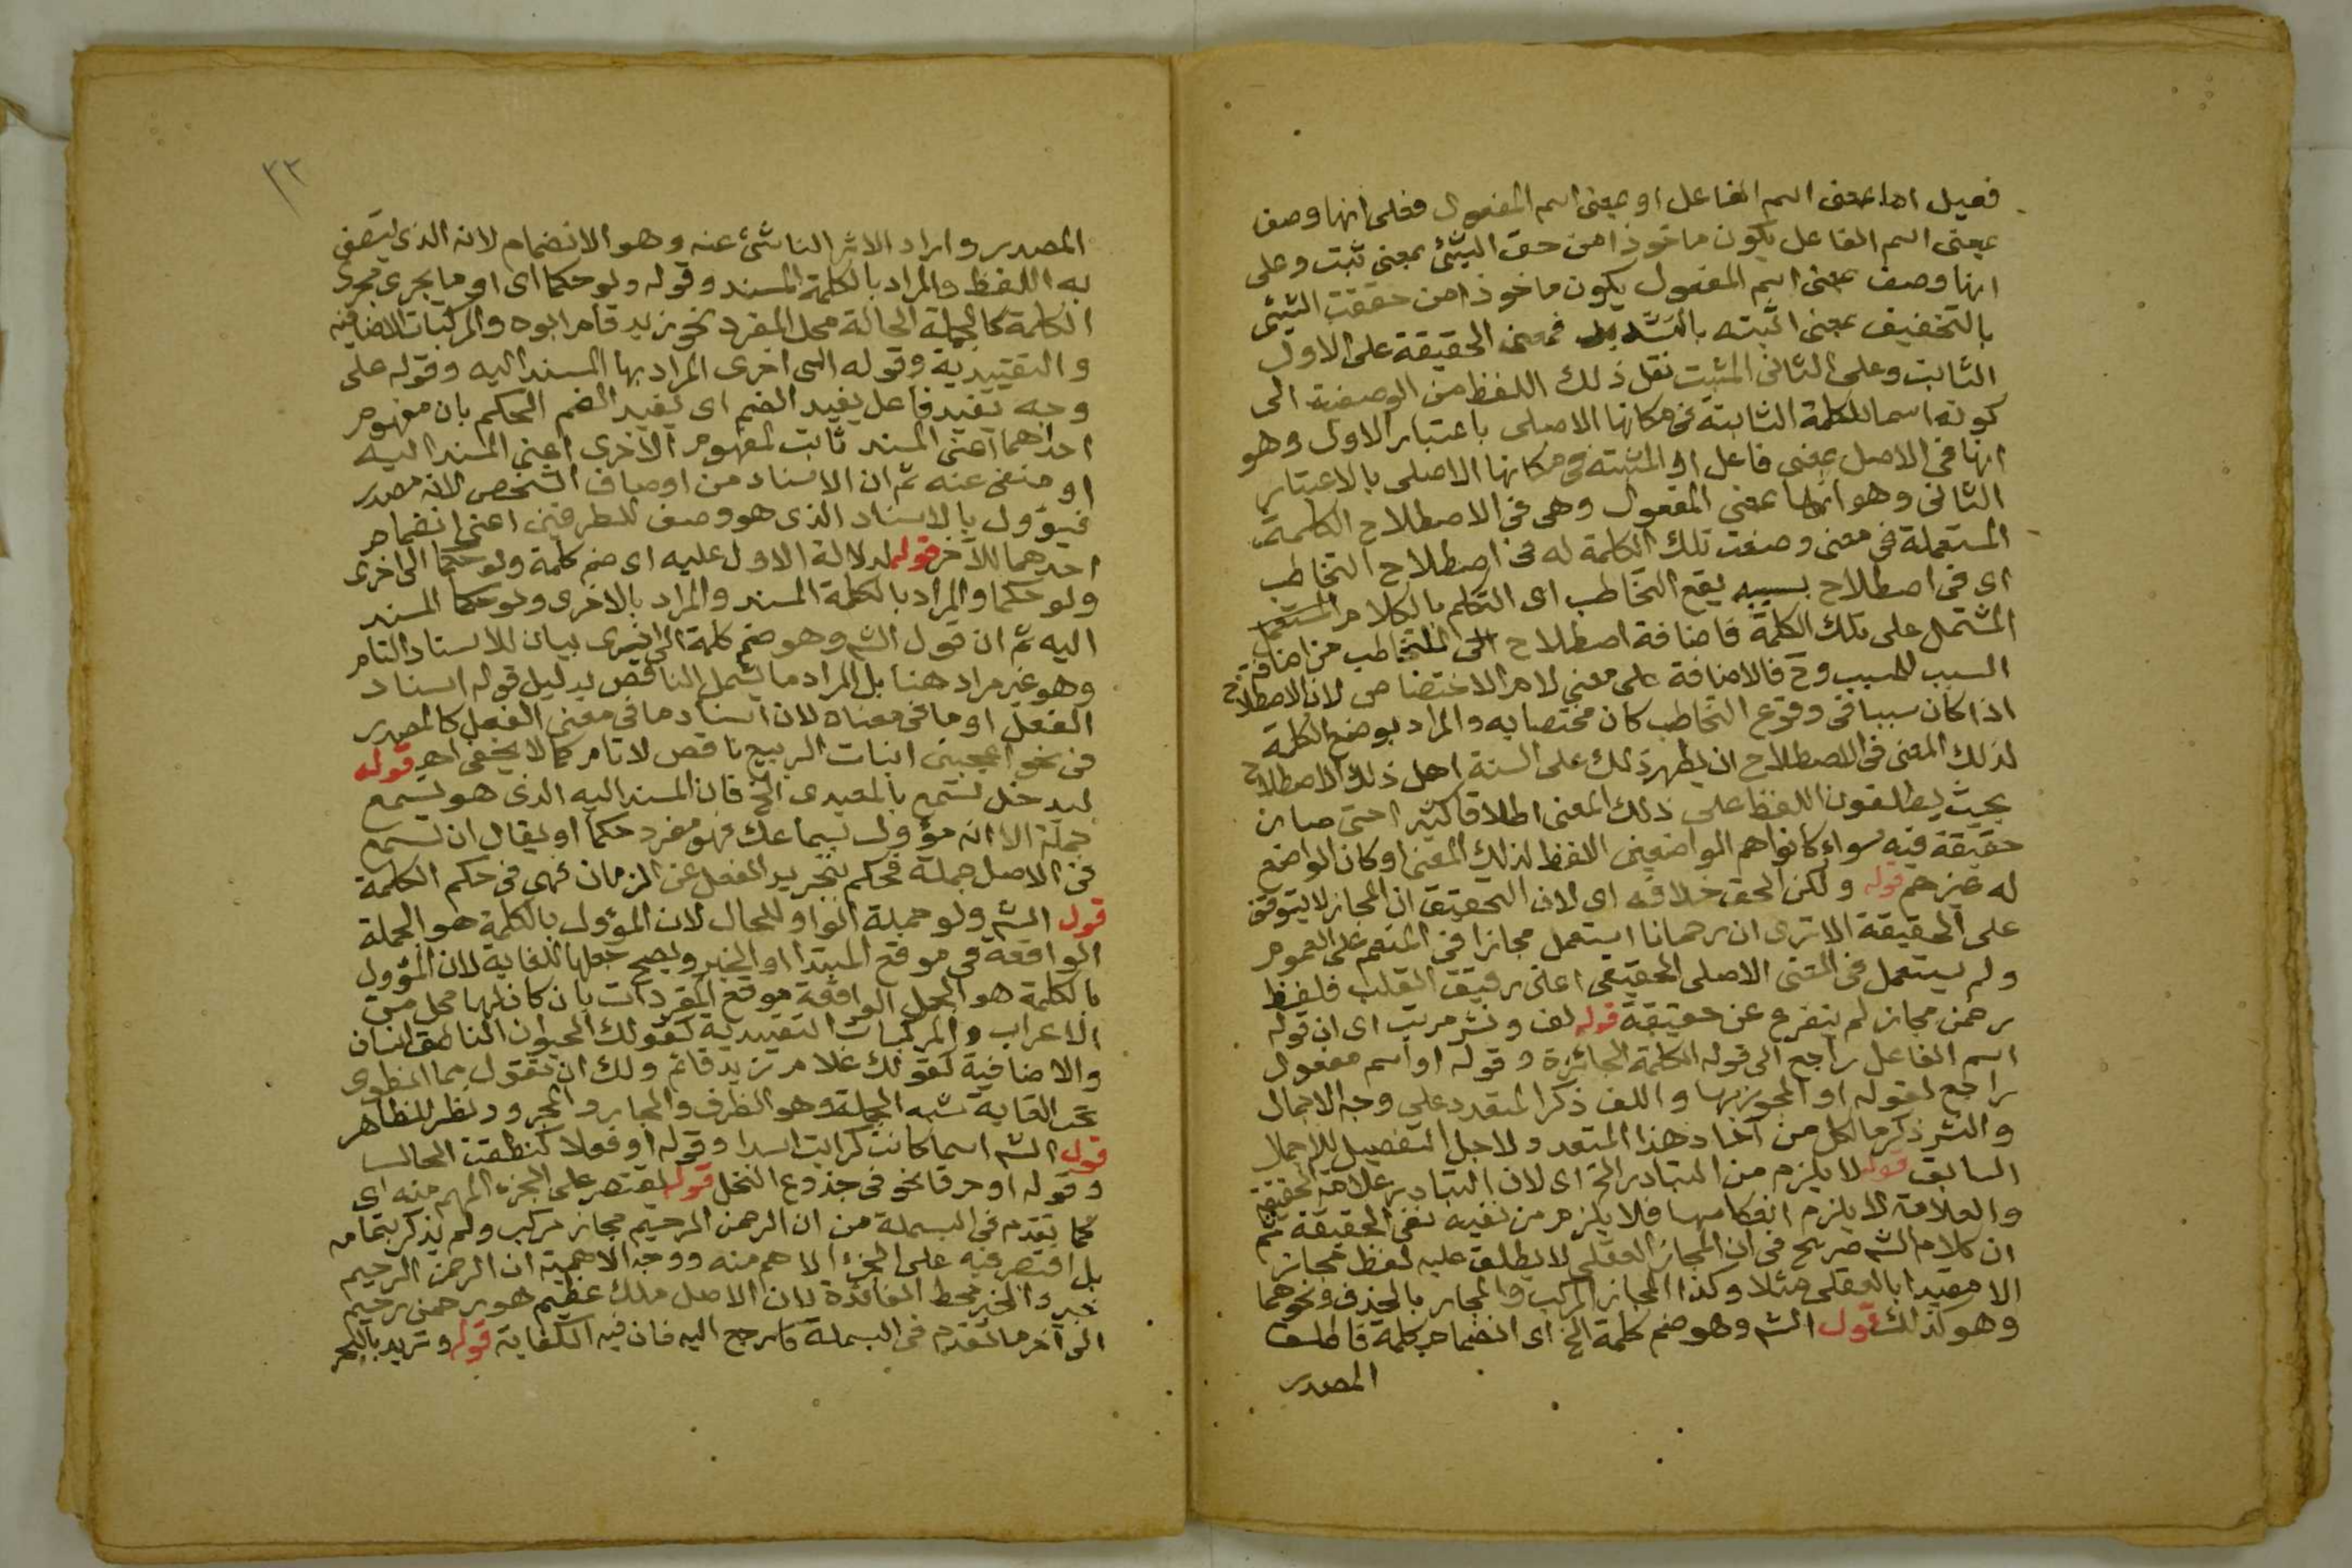 فعيل اما بمعنى اسم الفاعل او بمعنى اسم المفعول فعلى انها وصف
بمعنى اسم الفاعل يكون ماخوذا من حق الشئ بمعنى ثبت وعلى
انها وصف بمعنى اسم المفعول يكون ماخوذا من حققت الشئ
بالتخفيف بمعنى اثبته بالتشديد فمعنى الحقيقة على الاول
الثابت وعلى الثانى المثبت نقل ذلك اللفظ من الوصفية الى
كونه اسما للكلمة الثابتة فى مكانها الاصلى باعتبار الاول وهو
انها فى الاصل بمعنى فاعل او المثبتة فى مكانها الاصلى بالاعتبار
الثانى وهو انها بمعنى المفعول وهى فى الاصطلاح الكلمة
المستعملة فى معنى وضعت تلك الكلمة له فى اصطلاح التخاطب
اى فى اصطلاح بسببه يقع التخاطب اى التكلم بالكلام
المشتمل على تلك الكلمة فاضافة اصطلاح الى التخاطب من اضافة
السبب للمسبب وح فالاضافة على معنى لام الاختصاص لان الاصطلاح
اذا كان سببا فى وقوع التخاطب كان مختصا به والمراد بوضع الكلمة
لذلك المعنى فى الاصطلاح ان يظهر ذلك على السنة اهل ذلك الاصطلاح
بحيث يطلقون اللفظ على ذلك المعنى اطلاقا كثيرا حتى صار
حقيقة فيه سواء كانوا هم الواضعين اللفظ لذلك المعنى او كان الواضع
له غيرهم قوله ولكن الحق خلافه اى لان التحقيق ان المجاز لا يتوقف
على الحقيقة الا ترى ان رحمانا استعمل مجازا فى المنعم على العموم
ولم يستعمل فى المعنى الاصلى الحقيقى اعنى رقيق القلب فلفظ
رحمن مجاز لم يتفرع عن حقيقة قوله لف ونشر مرتب اى ان قوله
اسم الفاعل راجع الى قوله الكلمة الجائزة وقوله او اسم مفعول
راجع لقوله او المجوز بها واللف ذكر المتعدد على وجه الاجمال
والنشر ذكر ما لكل من آحاد هذا المتعدد ولاجل التفصيل للاجمال
السابق قوله لا يلزم من التبادر الخ اى لان التبادر علامة الحقيقة
والعلامة لا يلزم انعكاسها فلا يلزم من نفيه نفى الحقيقة ثم
ان كلام الشـ صريح فى ان المجاز العقلى لا يطلق عليه لفظ مجاز
الا مقيدا بالعقلى مثلا وكذا المجاز المركب والمجاز بالحذف ونحوهما
وهو كذلك قول الشـ وهو ضم كلمة الخ اى انضمام كلمة فاطلق
المصدر
٣٢
المصدر واراد الاثر الناشئ عنه وهو الانضمام لانه الذى يتصف
به اللفظ والمراد بالكلمة المسند وقوله ولو حكما اى او ما يجرى مجرى
الكلمة كالجملة الحالة محل المفرد نحو زيد قام ابوه والمركبات الاضافية
والتقييدية وقوله الى اخرى المراد بها المسند اليه وقوله على
وجه يفيد فاعل يفيد الضم اى يفيد الضم الحكم بان مفهوم
احداهما اعنى المسند ثابت لمفهوم الاخرى اعنى المسند اليه
او منفى عنه ثم ان الاسناد من اوصاف الشخص لانه مصدر
فيؤول بالاسناد الذى هو وصف للطرفين اعنى انضمام
احدهما للآخر قوله لدلالة الاول عليه اى ضم كلمة ولو حكما الى اخرى
ولو حكما والمراد بالكلمة المسند والمراد بالاخرى ولو حكما المسند
اليه ثم ان قول الشـ وهو ضم كلمة الى اخرى بيان للاسناد التام
وهو غير مراد هنا بل المراد ما يشمل الناقص بدليل قوله اسناد
الفعل او ما فى معناه لان اسناد ما فى معنى الفعل كالمصدر
فى نحو اعجبنى انبات الربيع ناقص لا تام كما لا يخفى اهـ قوله
ليدخل تسمع بالمعيدى الخ فان المسند اليه الذى هو تسمع
جملة الا انه مؤول بسماعك فهو مفرد حكما او يقال ان تسمع
فى الاصل جملة فحكم بتجريد الفعل عن الزمان فهى فى حكم الكلمة
قول الشـ ولو جملة الواو للحال لان المؤول بالكلمة هو الجملة
الواقعة فى موقع المبتدا او الخبر ويصح جعلها للغاية لان المؤول
بالكلمة هو الجمل الواقعة موقع المفردات بان كان لها محل من
الاعراب والمركبات التقييدية كقولك الحيوان الناطق انسان
والاضافية كقولك غلام زيد قائم ولك ان تقول مما انطوى
تحت الغاية شبه الجملة وهو الظرف والجار والمجرور ونظر للظاهر
قول الشـ اسما كانت كرايت اسدا وقوله او فعلا كنطقت الحال
وقوله او حرفا نحو فى جذوع النخل قوله مقتصر على الجزء الاهم منه اى
كما تقدم فى البسملة من ان الرحمن الرحيم مجاز مركب ولم يذكر بتمامه
بل اقتصر فيه على الجزء الاهم منه ووجه الاهمية ان الرحمن الرحيم
خبر والخبر محط الفائدة لان الاصل ملك عظيم هو رحمن رحيم
الى آخر ما تقدم فى البسملة فارجع اليه فان فيه الكفاية قوله وتريد بالبحر